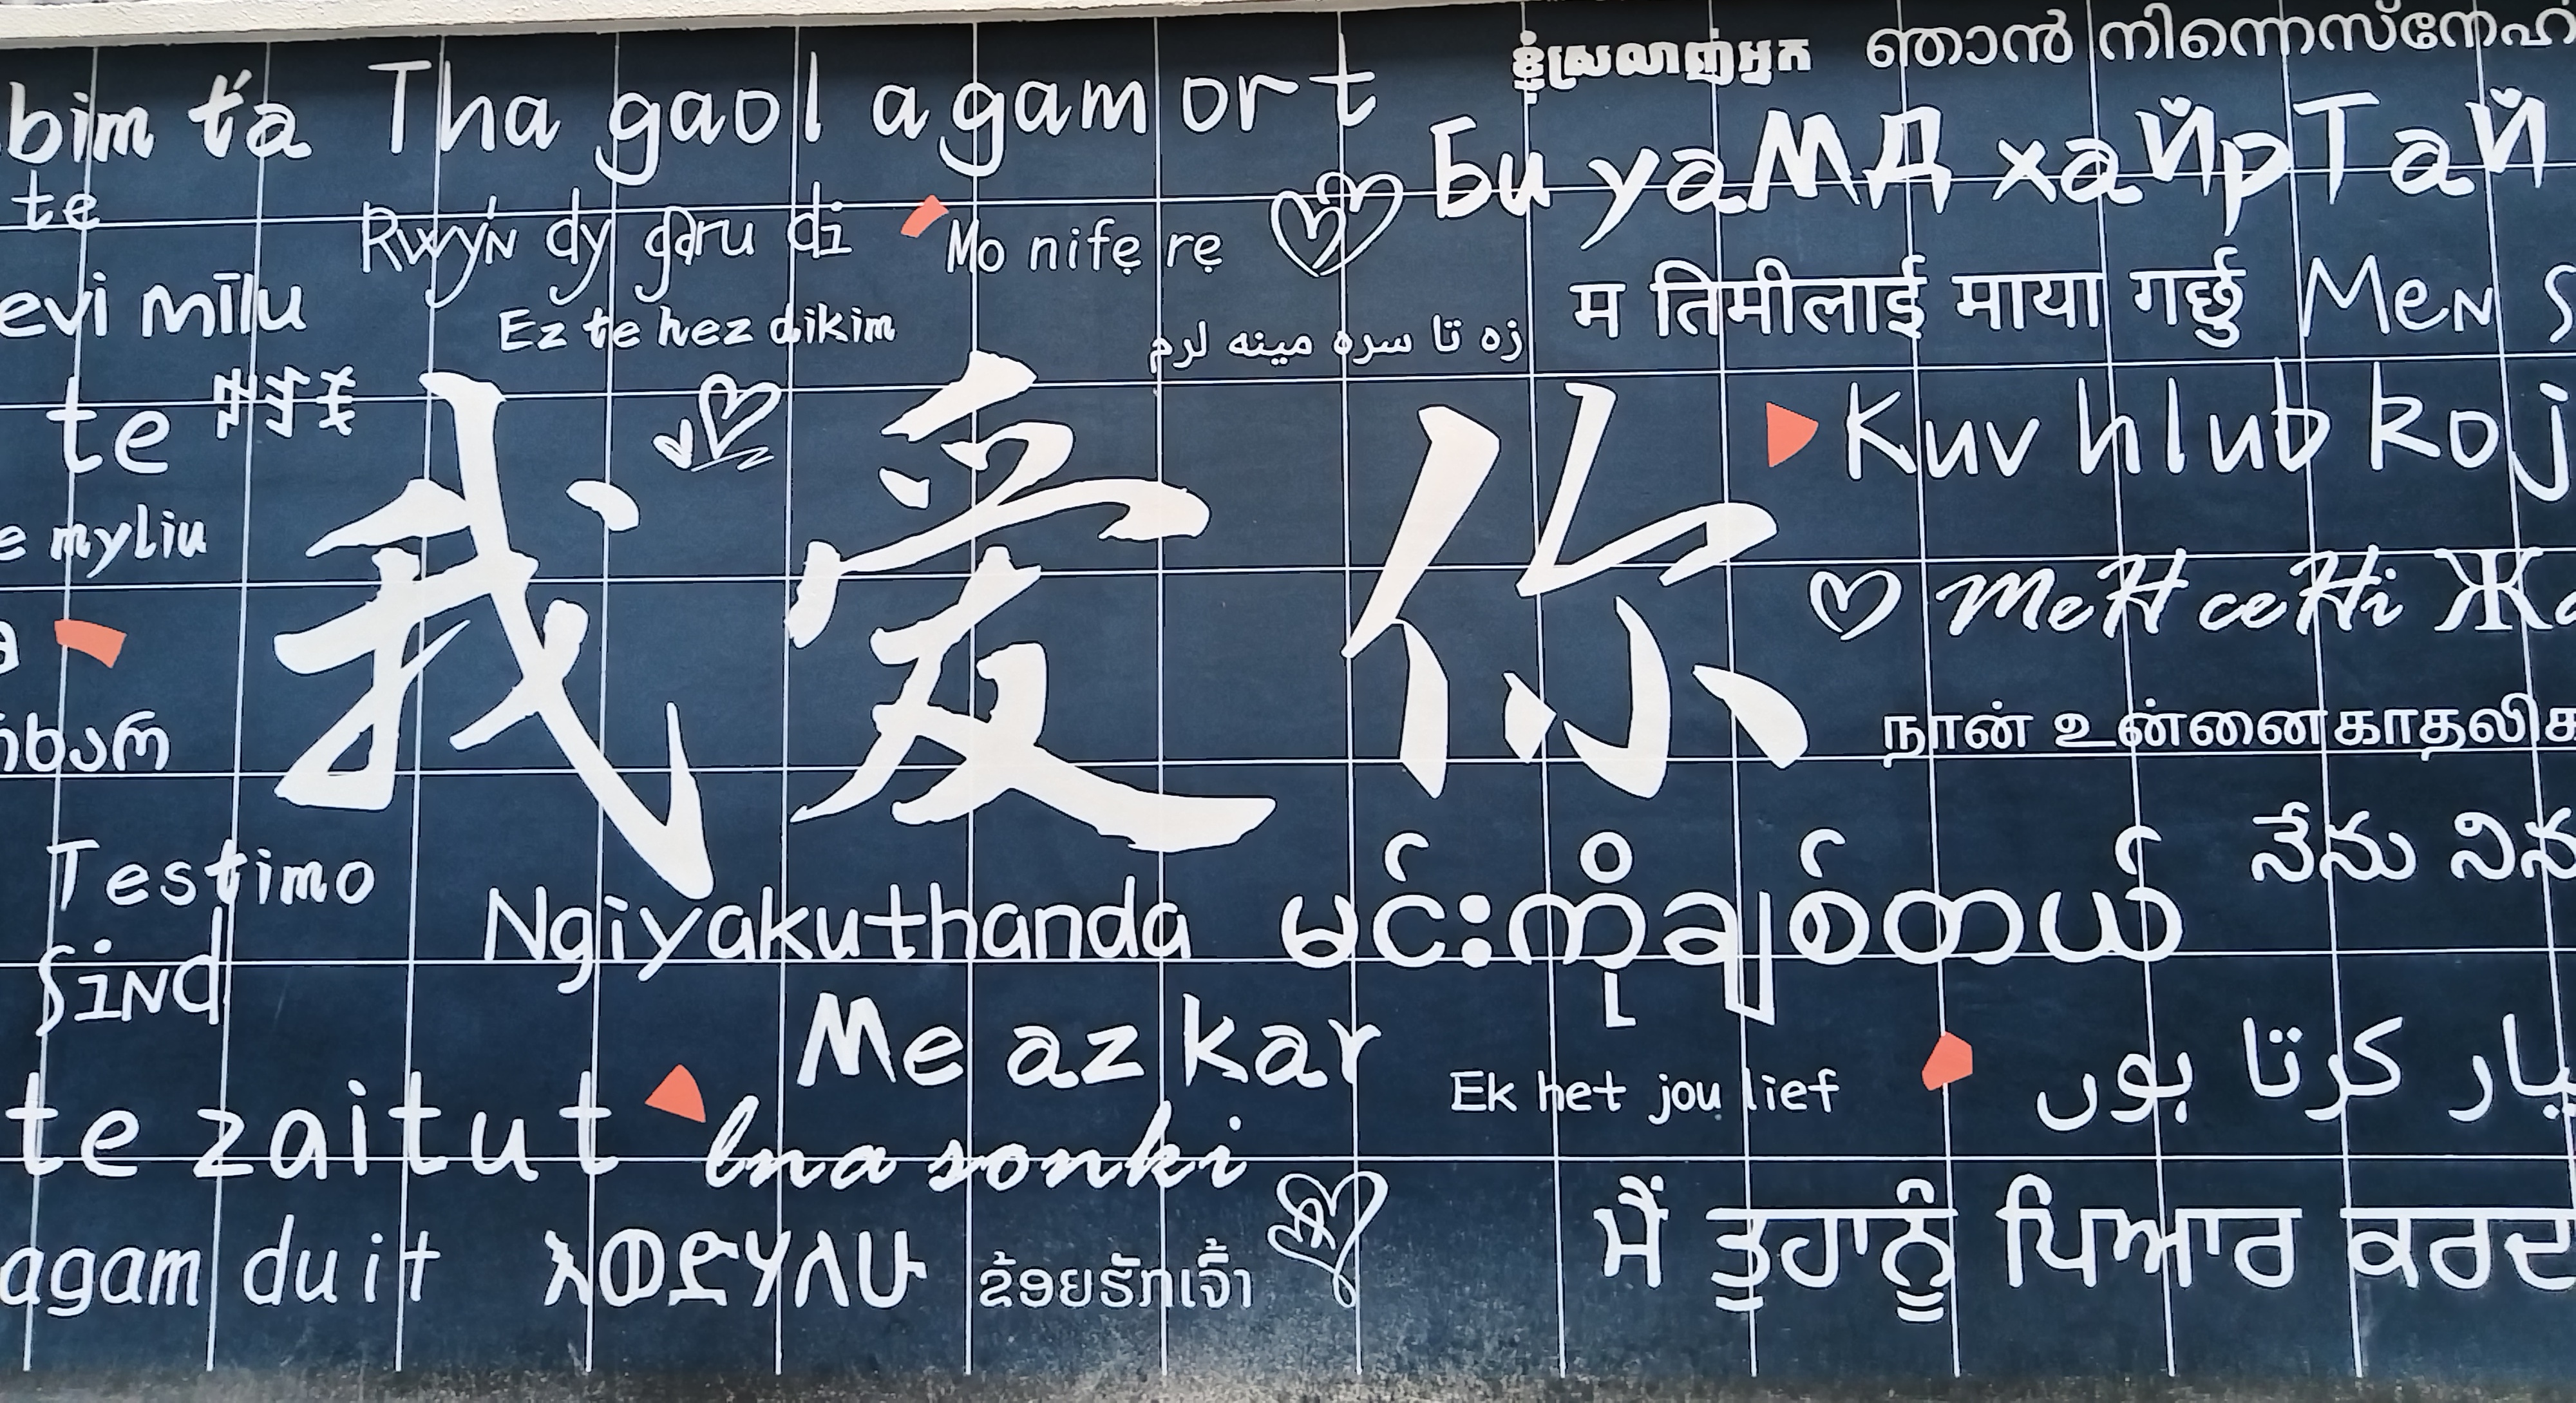 bim t'a Tha gaol agam ort ខ្ញុំស្រលាញ់អ្នក ഞാൻ നിന്നെസ്നേഹ
te Rwy'n dy garu di Mo nifẹ rẹ Би уамд хайртай
evi mīlu Ez te hez dikim زه تا سره مينه لرم म तिमीलाई माया गर्छु Men S
te Kuv hlub koj
我爱你
e myliu Мен сені Жа
நான் உன்னைகாதலிக
ხარ
Testimo
నేను నిన
Sind Ngiyakuthanda မင်းကိုချစ်တယ်
Me az kar
te zaitut Ek het jou lief یار کرتا ہوں
Ina sonki
agam duit እወድሃለሁ ຂ້ອຍຮັກເຈົ້າ ਮੈਂ ਤੁਹਾਨੂੰ ਪਿਆਰ ਕਰਦ